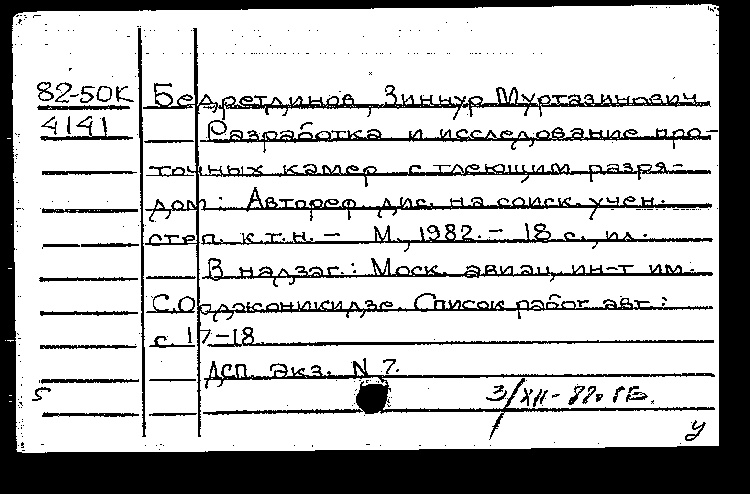 82-50К Бедретдинов, Зиннур Муртазинович
4141 Разработка и исследование про-
точных камер с тлеющим разря-
дом: Автореф. дис. на соиск. учен.
степ. к.т.н. - М., 1982. - 18 с., ил.
В надзаг.: Моск. авиац. ин-т им.
С. Орджоникидзе. Список работ авт.:
с. 17-18
ДСП экз. N 7.
5
у